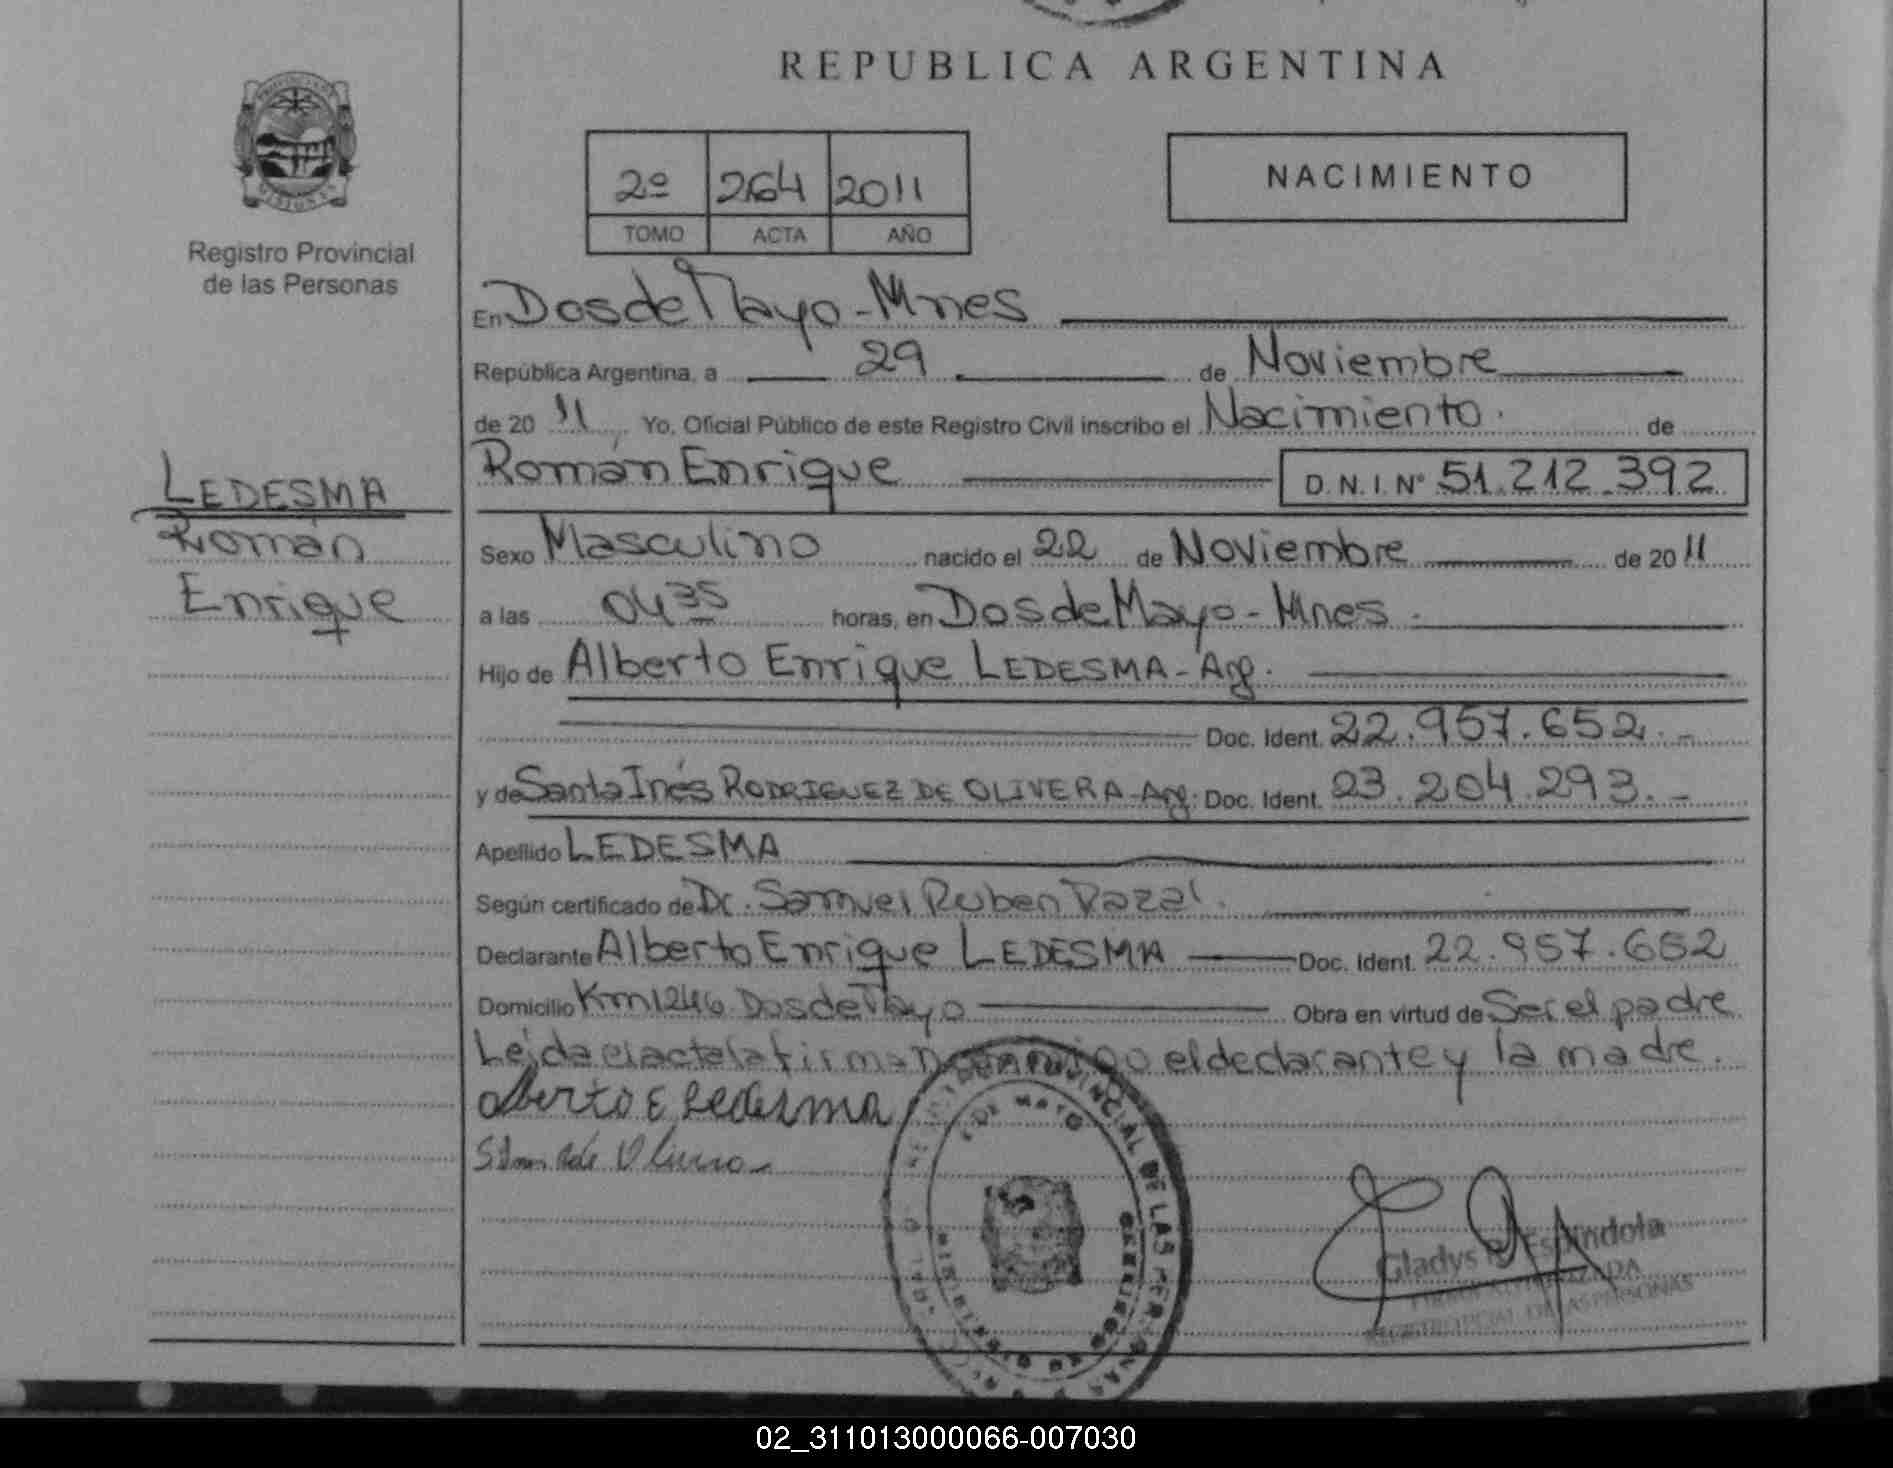 REPUBLICA ARGENTINA
2º 264 2011
TOMO ACTA AÑO
NACIMIENTO
Registro Provincial
de las Personas
En Dos de Mayo - Mnes
República Argentina, a 29 de Noviembre
de 20 11 Yo, Oficial Público de este Registro Civil inscribo el Nacimiento. de
Román Enrique D.N.I. Nº 51.212.392
LEDESMA
Román
Enrique
Sexo Masculino nacido el 22 de Noviembre de 20 11
a las 04 35 horas, en Dos de Mayo - Mnes.
Hijo de Alberto Enrique LEDESMA - Arg.
Doc. Ident. 22.957.652.-
y de Santa Inés RODRIGUEZ DE OLIVERA - Arg. Doc. Ident. 23.204.293.-
Apellido LEDESMA
Según certificado de Dr. Samuel Ruben
Declarante Alberto Enrique LEDESMA Doc. Ident. 22.957.652
Domicilio Km 1246 Dos de Mayo Obra en virtud de Ser el padre
Leída el acta la firman conmigo el declarante y la madre.
Alberto E Ledesma
REGISTRO PROVINCIAL DE LAS PERSONAS
2 DE MAYO
MISIONES
Gladys Espíndola
FIRMA AUTORIZADA
DE LAS PERSONAS
02_311013000066-007030